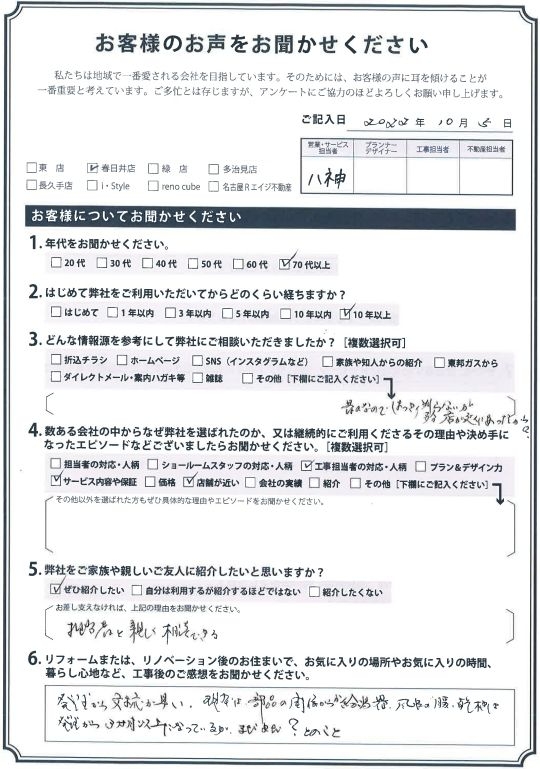 お客様のお声をお聞かせください
私たちは地域で一番愛される会社を目指しています。そのためには、お客様の声に耳を傾けることが
一番重要と考えています。ご多忙とは存じますが、アンケートにご協力のほどよろしくお願い申し上げます。
ご記入日 2022年 10月 5日
営業・サービス担当者 プランナーデザイナー 工事担当者 不動産担当者
八神
□東 店 ☑春日井店 □緑 店 □多治見店
□長久手店 □i・Style □reno cube □名古屋Rエイジ不動産
お客様についてお聞かせください
1. 年代をお聞かせください。
□20代 □30代 □40代 □50代 □60代 ☑70代以上
2. はじめて弊社をご利用いただいてからどのくらい経ちますか？
□はじめて □1年以内 □3年以内 □5年以内 □10年以内 ☑10年以上
3. どんな情報源を参考にして弊社にご相談いただきましたか？［複数選択可］
□折込チラシ □ホームページ □SNS（インスタグラムなど） □家族や知人からの紹介 □東邦ガスから
□ダイレクトメール・案内ハガキ等 □雑誌 □その他［下欄にご記入ください］
昔なので はっきり判らないが
店が近くにあったから？
4. 数ある会社の中からなぜ弊社を選ばれたのか、又は継続的にご利用くださるその理由や決め手に
なったエピソードなどございましたらお聞かせください。［複数選択可］
□担当者の対応・人柄 □ショールームスタッフの対応・人柄 ☑工事担当者の対応・人柄 □プラン＆デザイン力
☑サービス内容や保証 □価格 ☑店舗が近い □会社の実績 □紹介 □その他［下欄にご記入ください］
その他以外を選ばれた方もぜひ具体的な理由やエピソードをお聞かせください。
5. 弊社をご家族や親しいご友人に紹介したいと思いますか？
☑ぜひ紹介したい □自分は利用するが紹介するほどではない □紹介したくない
お差し支えなければ、上記の理由をお聞かせください。
担当者と親しく相談できる
6. リフォームまたは、リノベーション後のお住まいで、お気に入りの場所やお気に入りの時間、
暮らし心地など、工事後のご感想をお聞かせください。
発注から 対応が早い。現在は 部品の関係からか給湯器、風呂の暖、乾機は
発注から 3ヶ月以上になっているが、まだ ？とのこと